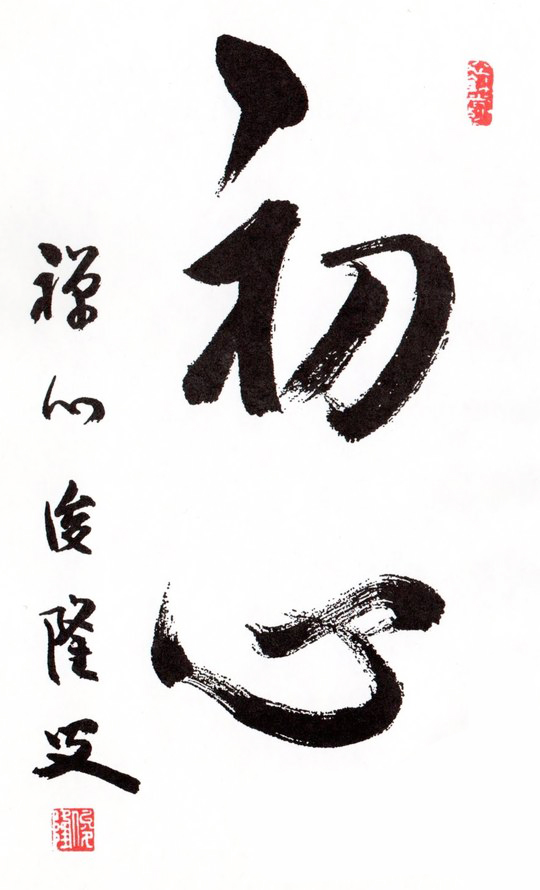 初心
禅心 俊隆叟